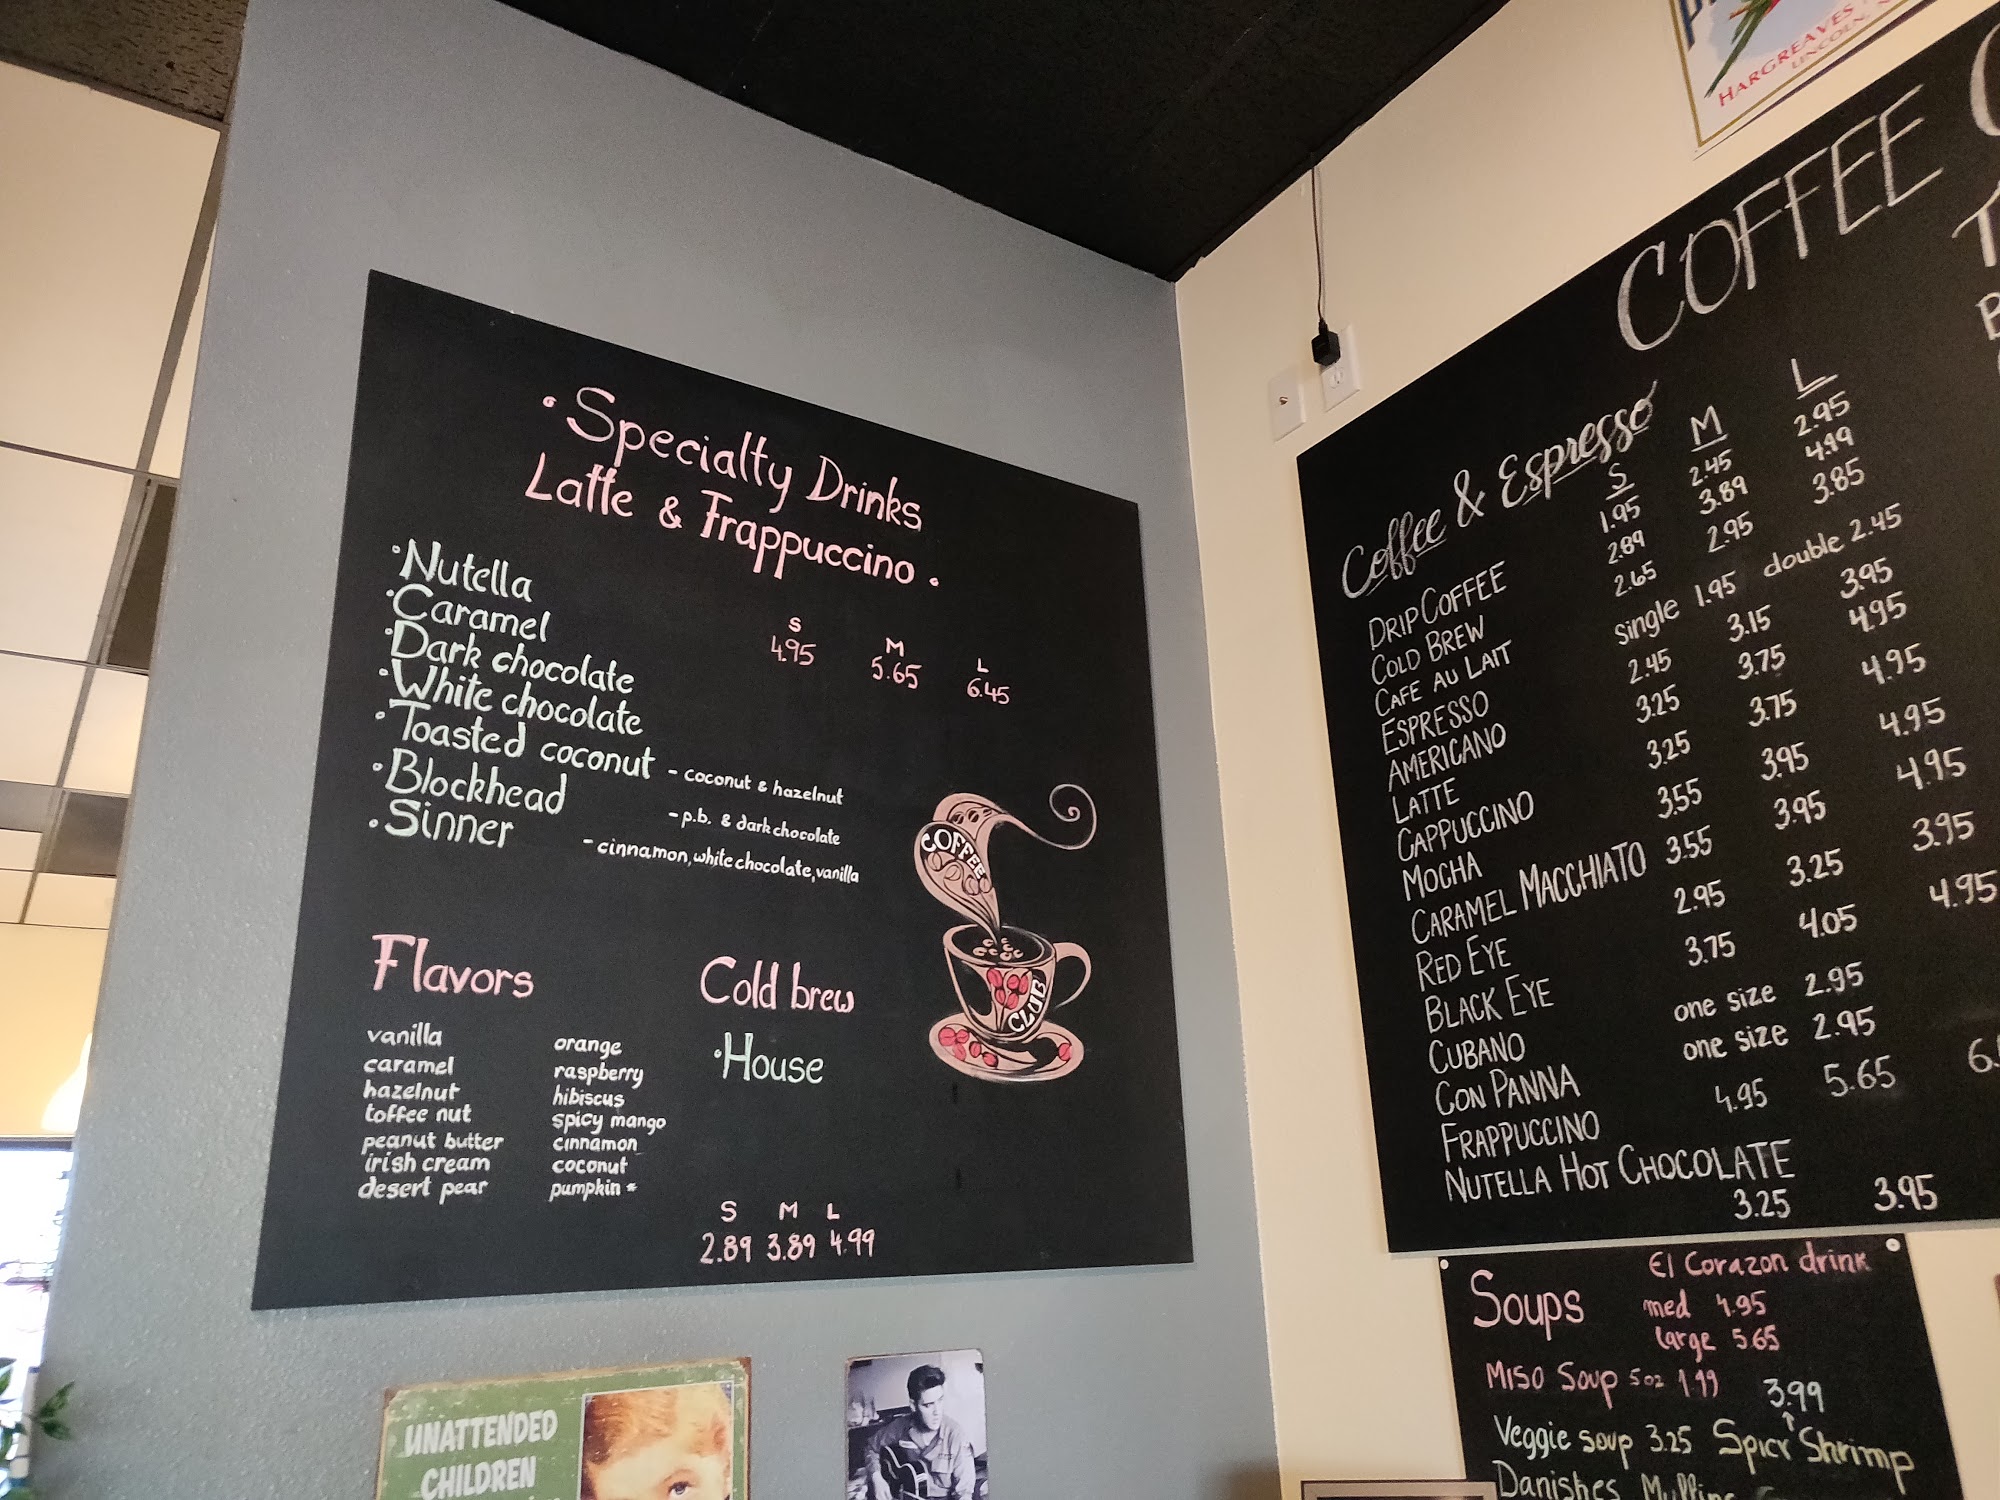 Specialty Drinks
Latte & Frappuccino
Nutella
Caramel
Dark chocolate
White chocolate
Toasted coconut - coconut & hazelnut
Blockhead - p.b. & dark chocolate
Sinner - cinnamon, white chocolate, vanilla
S M L
4.95 5.65 6.45
COFFEE
CLUB
Flavors
vanilla
caramel
hazelnut
toffee nut
peanut butter
irish cream
desert pear
orange
raspberry
hibiscus
spicy mango
cinnamon
coconut
pumpkin *
Cold brew
House
S M L
2.89 3.89 4.99
UNATTENDED
CHILDREN
HARGREAVES
COFFEE
Coffee & Espresso
S M L
DRIP COFFEE 1.95 2.45 2.95
COLD BREW 2.89 3.89 4.99
CAFE AU LAIT 2.65 2.95 3.85
ESPRESSO single 1.95 double 2.45
AMERICANO 2.45 3.15 3.95
LATTE 3.25 3.75 4.95
CAPPUCCINO 3.25 3.75 4.95
MOCHA 3.55 3.95 4.95
CARAMEL MACCHIATO 3.55 3.95 4.95
RED EYE 2.95 3.25 3.95
BLACK EYE 3.75 4.05 4.95
CUBANO one size 2.95
CON PANNA one size 2.95
FRAPPUCCINO 4.95 5.65
NUTELLA HOT CHOCOLATE
3.25 3.95
Soups
El Corazon drink
med 4.95
large 5.65
MISO Soup 5oz 1.99
3.99
Veggie soup 3.25 Spicy Shrimp
Danishes